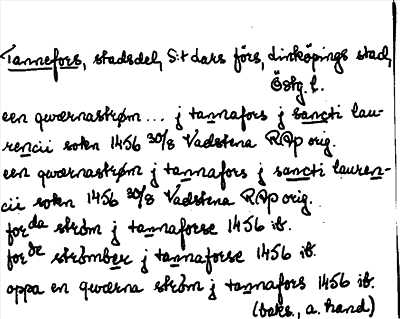 Tannefors, stadsdel, S:t Lars förs, Linköpings stad,
Östg. l.
een qwærnastrøm ... j tannafors j sancti lau-
rencii sokn 1456 30/8 Vadstena RAp orig.
een qwærnastrøm j tannafors j sancti lauren-
cii sokn 1456 30/8 Vadstena RAp orig.
forda strøm j tannaforse 1456 ib.
forde strømber j tannaforse 1456 ib.
oppa en qwærna strøm j tannafors 1456 ib.
(baks., a. hand)